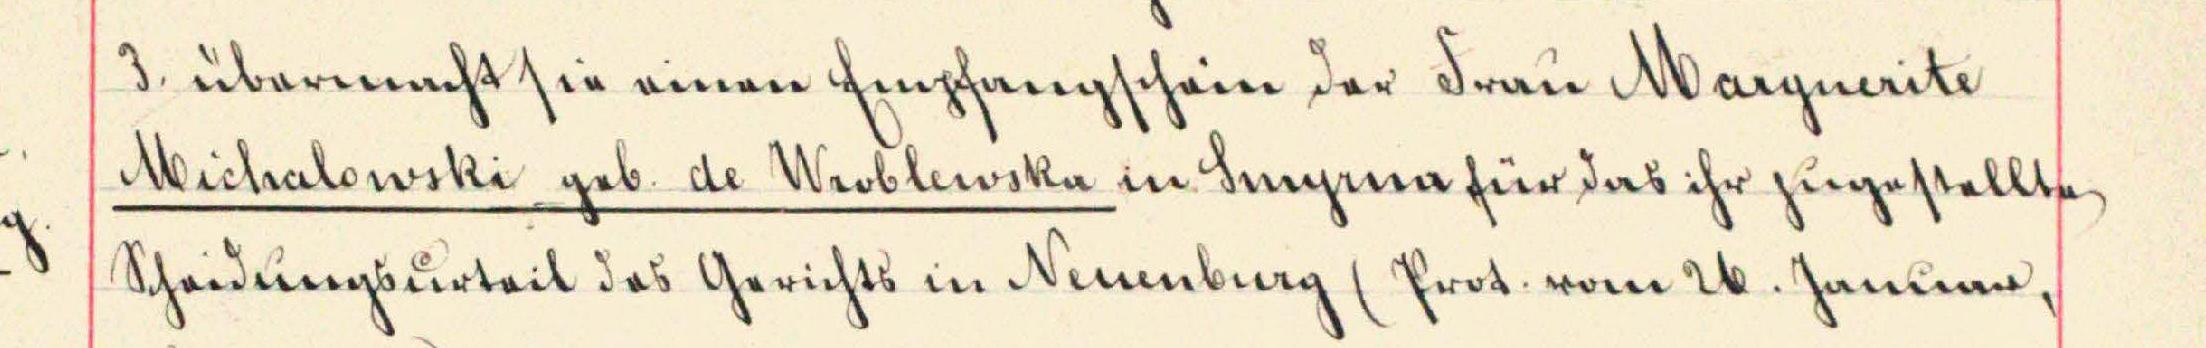 3. übermacht sie einen Empfangschein der Frau Marguerite
Michalowski geb. de Wroblewska in Smyrna für das ihr zugestellte
Scheidungsurteil des Gerichts in Neuenburg (Prot. vom 26. Januar,